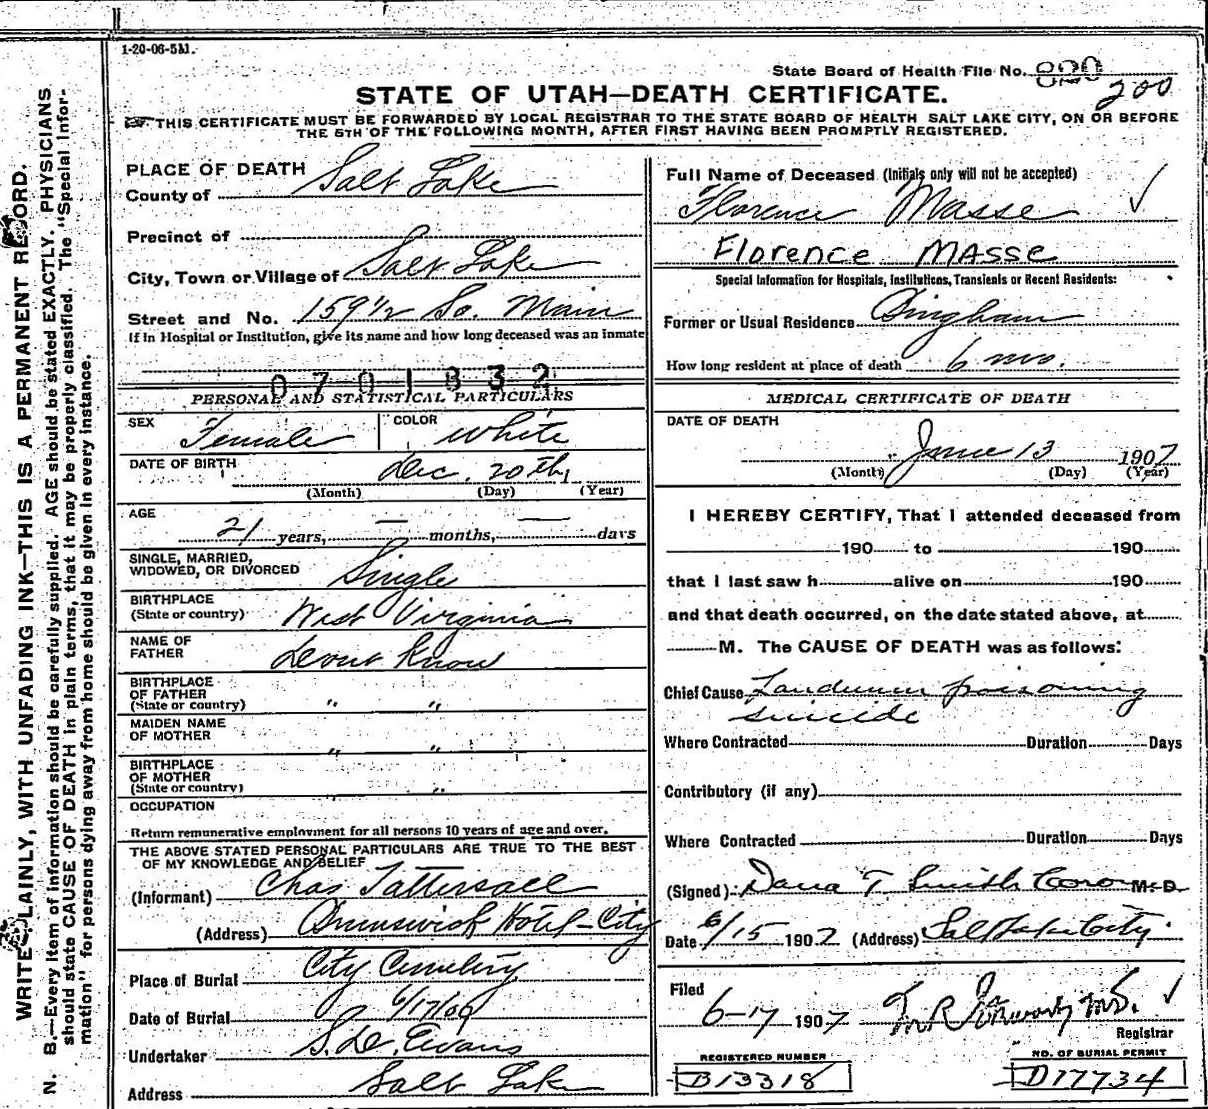 1-20-06-5M.
State Board of Health File No. 820
200
STATE OF UTAH—DEATH CERTIFICATE.
THIS CERTIFICATE MUST BE FORWARDED BY LOCAL REGISTRAR TO THE STATE BOARD OF HEALTH SALT LAKE CITY, ON OR BEFORE
THE 5TH OF THE FOLLOWING MONTH, AFTER FIRST HAVING BEEN PROMPTLY REGISTERED.
PLACE OF DEATH
County of Salt Lake
Precinct of
City, Town or Village of Salt Lake
Street and No. 159 1/2 So. Main
If in Hospital or Institution, give its name and how long deceased was an inmate
0701832
PERSONAL AND STATISTICAL PARTICULARS
SEX Female COLOR White
DATE OF BIRTH Dec. 20th
(Month) (Day) (Year)
AGE
21 years, — months, — days
SINGLE, MARRIED,
WIDOWED, OR DIVORCED Single
BIRTHPLACE
(State or country) West Virginia
NAME OF
FATHER Dont Know
BIRTHPLACE
OF FATHER
(State or country) " "
MAIDEN NAME
OF MOTHER " "
BIRTHPLACE
OF MOTHER
(State or country) " "
OCCUPATION
Return remunerative employment for all persons 10 years of age and over.
THE ABOVE STATED PERSONAL PARTICULARS ARE TRUE TO THE BEST
OF MY KNOWLEDGE AND BELIEF
(Informant) Chas Tattersall
(Address) Brunswick Hotel-City
Place of Burial City Cemetery
Date of Burial 6/17/06
Undertaker S. D. Evans
Address Salt Lake
Full Name of Deceased (Initials only will not be accepted)
Florence Masse
Florence MASSe
Special Information for Hospitals, Institutions, Transients or Recent Residents:
Former or Usual Residence Bingham
How long resident at place of death 6 mo.
MEDICAL CERTIFICATE OF DEATH
DATE OF DEATH
June 13 1907
(Month) (Day) (Year)
I HEREBY CERTIFY, That I attended deceased from
190 to 190
that I last saw h alive on 190
and that death occurred, on the date stated above, at
M. The CAUSE OF DEATH was as follows:
Chief Cause Laudunum poisoning
suicide
Where Contracted Duration Days
Contributory (if any)
Where Contracted Duration Days
(Signed) Dana T Smith Coro M. D.
Date 6/15 1907 (Address) Salt Lake City.
Filed
6-17 1907 M.D.
Registrar
REGISTERED NUMBER
B13318
NO. OF BURIAL PERMIT
D17734
WRITE PLAINLY, WITH UNFADING INK—THIS IS A PERMANENT RECORD.
N. B.—Every item of information should be carefully supplied. AGE should be stated EXACTLY. PHYSICIANS
should state CAUSE OF DEATH in plain terms, that it may be properly classified. The "Special Infor-
mation" for persons dying away from home should be given in every instance.